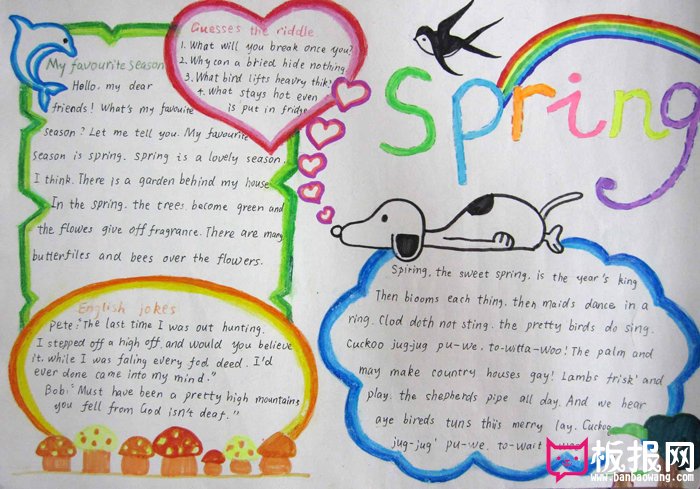 My favourite season
Hello, my dear
friends! What's my favouite
season? Let me tell you. My favourite
season is spring. spring is a lovely season.
I think. There is a garden behind my house
In the spring. the trees become green and
the flowes give off fragrance. There are many
butterflies and bees over the flowers.
Guesses the riddle
1. What will you break once you?
2. Why can a bried hide nothing
3. What bird lifts heavry thik?
4. What stays hot even
is put in fridge
Spring
English jokes
Pete: "The last time I was out hunting.
I stepped off a high off. and would you believe
it, while I was faling every fod deed. I'd
ever done came into my mind."
Bobi: "Must have been a pretty high mountains
you fell from God isn't deaf."
Spiring, the sweet spring, is the year's king
Then biooms each thing, then maids dance in a
ring. Clod doth not sting. the pretty birds do sing.
Cuckoo jug-jug pu-we, to-witta-woo! The palm and
may make country houses gay! Lambs frisk' and
play. the shepherds pipe all day. And we hear
aye bireds tuns this merry lay. Cuckoo
jug-jug' pu-we. to-wait
板报网
www.banbaowang.com